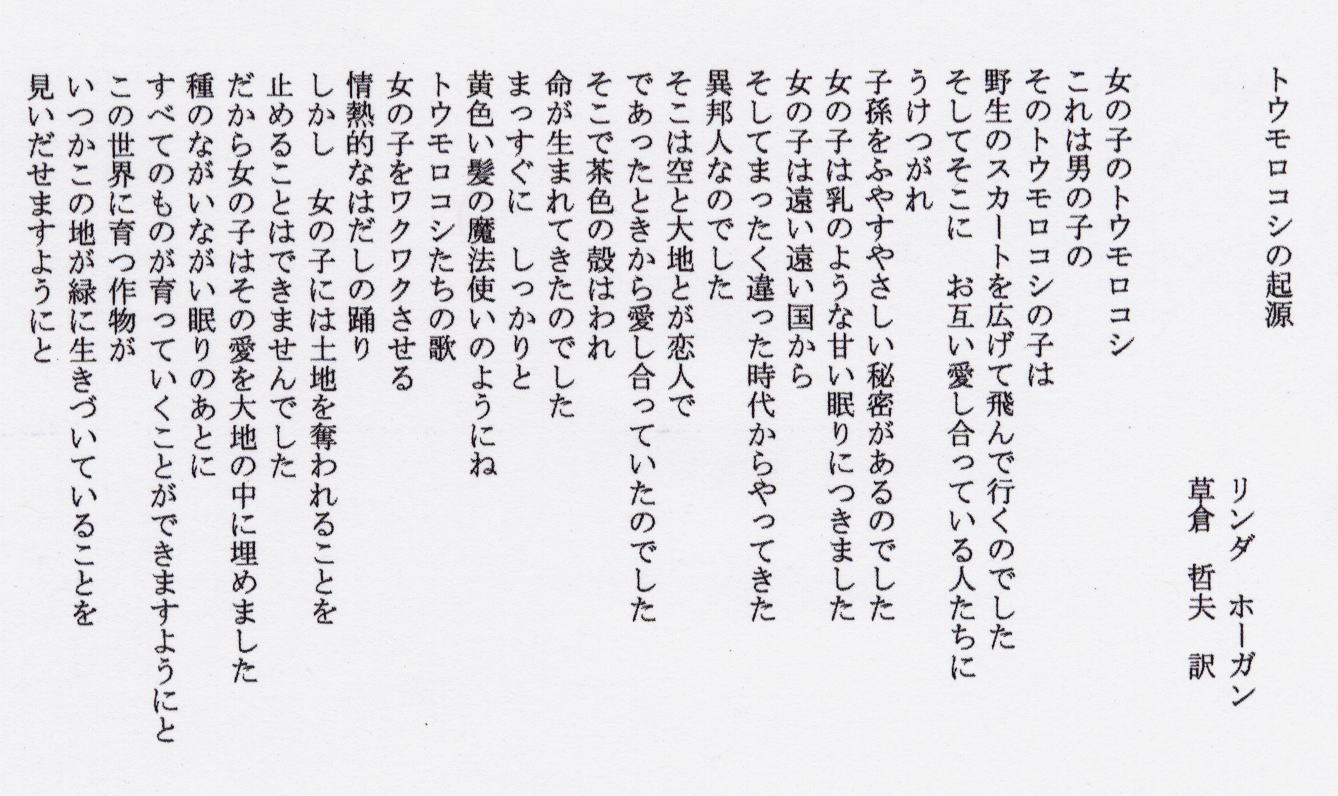 トウモロコシの起源
リンダ　ホーガン
草倉　哲夫　訳
女の子のトウモロコシ
これは男の子の
そのトウモロコシの子は
野生のスカートを広げて飛んで行くのでした
そしてそこに　お互い愛し合っている人たちに
うけつがれ
子孫をふやすやさしい秘密があるのでした
女の子は乳のような甘い眠りにつきました
女の子は遠い遠い国から
そしてまったく違った時代からやってきた
異邦人なのでした
そこは空と大地とが恋人で
であったときから愛し合っていたのでした
そこで茶色の殻はわれ
命が生まれてきたのでした
まっすぐに　しっかりと
黄色い髪の魔法使いのようにね
トウモロコシたちの歌
女の子をワクワクさせる
情熱的なはだしの踊り
しかし　女の子には土地を奪われることを
止めることはできませんでした
だから女の子はその愛を大地の中に埋めました
種のながいながい眠りのあとに
すべてのものが育っていくことができますようにと
この世界に育つ作物が
いつかこの地が緑に生きづいていることを
見いだせますようにと